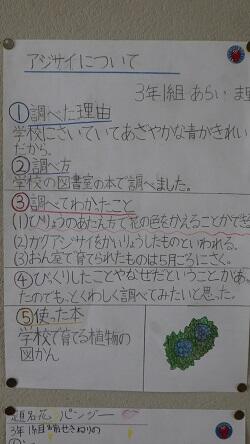 アジサイについて
3年1組 あらい
①調べた理由
学校にさいていてあざやかな青がきれい
だから。
②調べ方
学校の図書室の本で調べました。
③調べてわかたこと
(1)ひりょうのあたえ方で花の色をかえることができ
(2)ガクアジサイをかいりょうしたものといわれる。
(3)おん室で育てられたものは5月ごろにさく。
④びっくりしたことやなぜだということがあっ
たのでも、とくわしく調べてみたいと思った。
⑤使った本
学校で育てる植物の
図かん
題名花 パンジー
3年1組